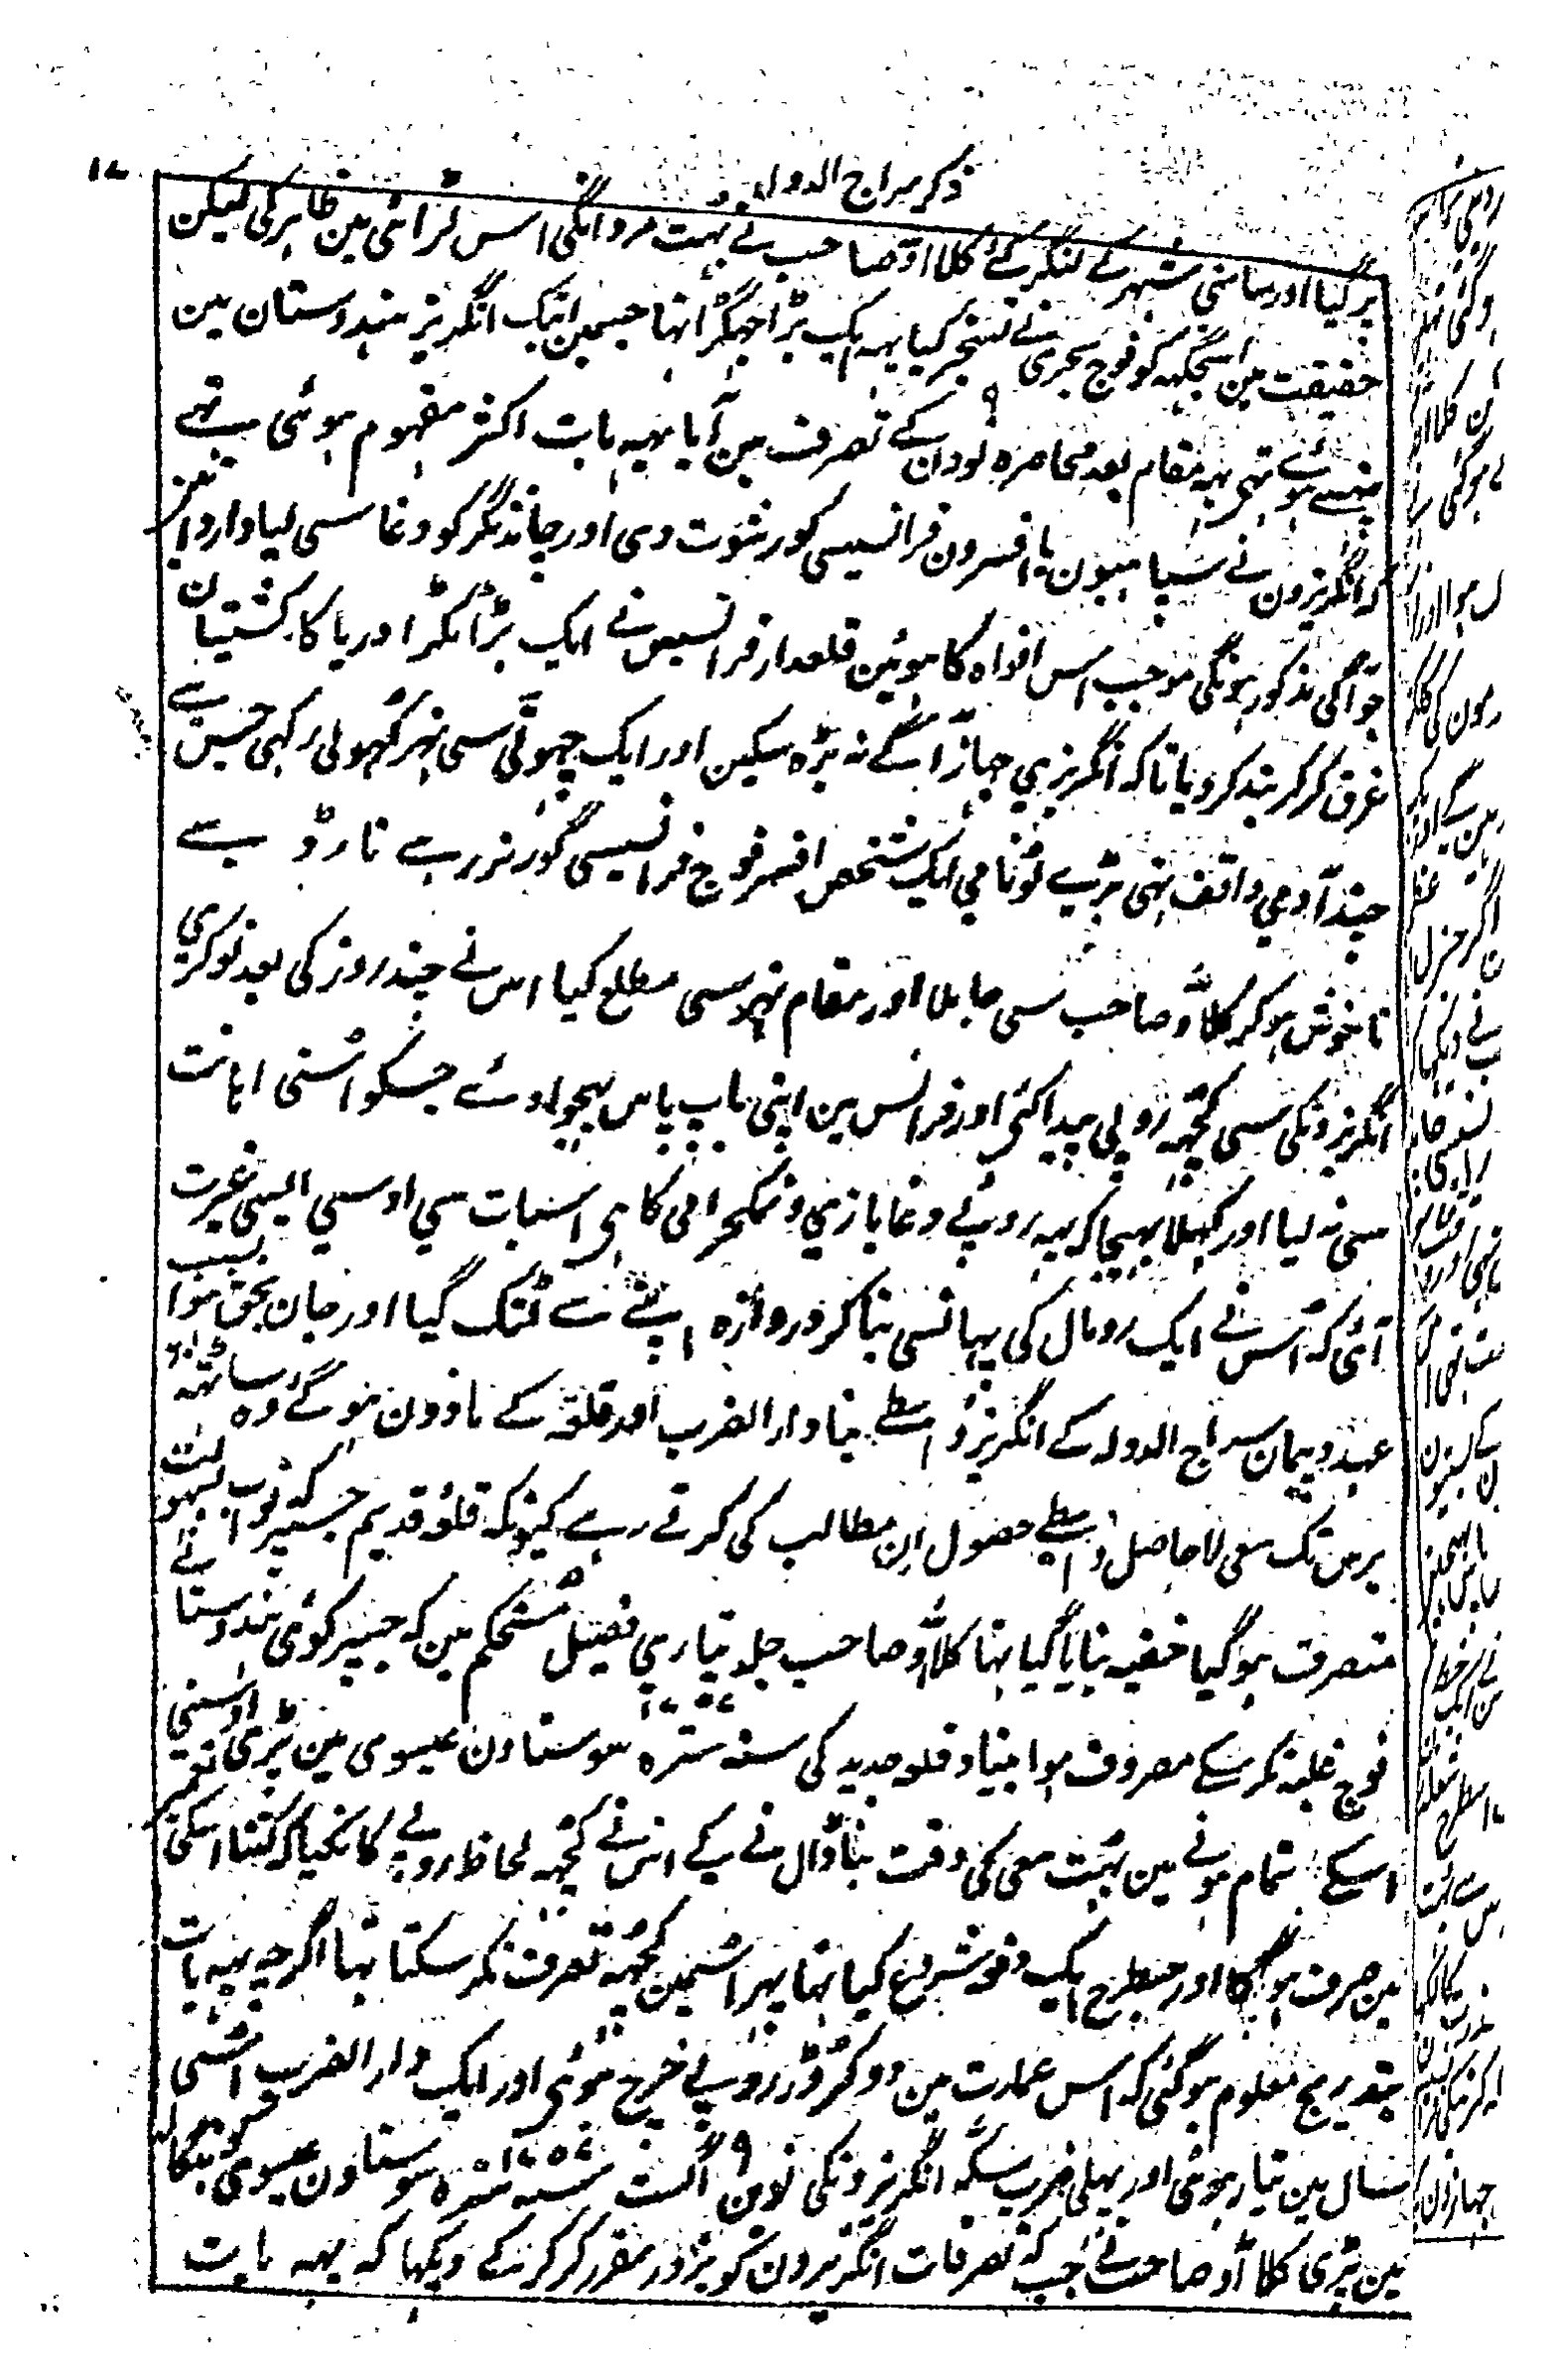 ذکر سراج الدولہ
۱۷
پر گیا اور سامنی شہر کے لنگر کئے کلااؤ صاحب نے بہت مردانگی اس لڑائی مین ظاہر کی لیکن
حقیقت مین اسجگہہ کو فوج بحری نے تسخیر کیا یہہ ایک بڑا جہگڑا تہا جسمین ابتک انگریز ہندوستان مین
پہنسے ہوئے تہی یہہ مقام بعد محاصرہ ۹ نو دن کے تصرف مین آیا یہہ بات اکثر مفہوم ہوئی ہے
کہ انگریزون نے سپاہیون یا افسرون فرانسیسی کو رشوت دی اور چاندنگر کو دغا سی لیا واردات
جو آگی مذکور ہونگی موجب اس افواہ کا ہوئین قلعدار فرانسیس نے ایک بڑا ٹکڑا دریا کا کشتیان
غرق کر کر بند کر دیا تاکہ انگریزی جہاز آگے نہ بڑہ سکین اور ایک چہوٹی سی نہر کہولی رکہی جس سے
چند آدمی واقف تہی ٹریے نو نامی ایک شخص افسر فوج فرانسیسی گورنر رے نارڈ سے
ناخوش ہو کر کلااؤ صاحب سی جا ملا اور مقام نہر سی مطلع کیا اس نے چند روز کی بعد نوکری
انگریزونکی سی کچہہ روپی پیدا کئی اور فرانس مین اپنی باپ پاس بہجوا دئے جسکو اسنی اہانت
سی نہ لیا اور کہلا بہیجا کہ یہہ روپئے دغابازی و نمکحرامی کا ہی اسبات سی اوسی ایسی غیرت
آئی کہ اس نے ایک رومال کی پہانسی بنا کر دروازہ اپنے سے لٹک گیا اور جان بحق ہوا بسبب
عہد و پیمان سراج الدولہ کے انگریز واسطے بنا دار الضرب اور قلعہ کے ماذون ہوگئے وہ ساٹہہ
برس تک سعی لاحاصل واسطے حصول ان مطالب کی کرتے رہے کیونکہ قلعہ قدیم جسپر کہ نواب بسہولت
متصرف ہو گیا خفیہ بنایا گیا تہا کلااؤ صاحب جلد تیاری فصیل مستحکم مین کہ جسپر کوئی ہندوستانے
فوج غلبہ نکر سکے مصروف ہوا بنیاد قلعہ جدید کی سنہ ۱۷۵۷ سترہ سو ستاون عیسوی مین پڑی اوسنی
اسکے تمام ہونے مین بہت سعی کی وقت بنا ڈالنے کے اس نے کچہہ لحاظ روپے کا نکیا کہ کتنا اسکی تعمیر
مین صرف ہوگا اور جسطرح ایک دفعہ شروع کیا تہا پہر اسمین کچہہ تصرف نکر سکتا تہا اگرچہ یہہ بات
بتدریج معلوم ہوگئی کہ اس عمارت مین دو کڑوڑ روپئے خرچ ہوئی اور ایک دار الضرب اسی
سال مین تیار ہوئی اور پہلی ضرب سکہ انگریزونکی نوین ۹ اگست سنہ ۱۷۵۷ سترہ سو ستاون عیسوی کو بنگالہ
مین پڑی کلااؤ صاحب نے جب کہ تصرفات انگریزون کو بزور مقرر کر کر کے دیکہا کہ یہہ بات